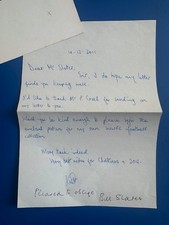 Dear Mr
first, I do hope my letter
finds you keeping well.
I'd like to thank Mr for sending on
my letter to you.
Would you be kind enough to please sign the
enclosed picture for my own football
collection.
Many thanks indeed
Very best wishes for Christmas & 2012.
Pleased to oblige
Bill Slater